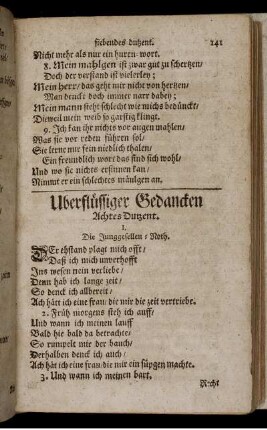 siebendes dutzent. 241
Nicht mehr als nur ein huren-wort.
8. Mein mahlgen ist zwar gut zu schertzen,
Doch der verstand ist vielerley;
Mein herr/ das geht mir nicht von hertzen/
Man denckt doch immer narr dabey;
Mein mann steht schlecht wie michs bedünckt/
Dieweil mein weib so garstig klingt.
9. Ich kan ihr nichts vor augen mahlen/
Was sie vor reden führen sol/
Sie lerne mir fein niedlich thalen/
Ein freundlich wort das find sich wohl/
Und wo sie nichts ersinnen kan/
Nimmt er ein schlechtes mäulgen an.
Uberflüssiger Gedancken
Achtes Dutzent.
I.
Die Junggesellen-Noth.
DEr ehstand plagt mich offt/
Daß ich mich unverhofft
Ins wesen nein verliebe/
Denn hab ich lange zeit/
So denck ich allbereit/
Ach hätt ich eine frau/die mir die zeit vertriebe.
2. Früh morgens steh ich auff/
Und wann ich meinen lauff
Bald hie bald da betrachte/
So rumpelt mir der bauch/
Derhalben denck ich auch/
Ach hätt ich eine frau/die mir ein süpgen machte.
3. Und wann ich meinen bart.
Recht